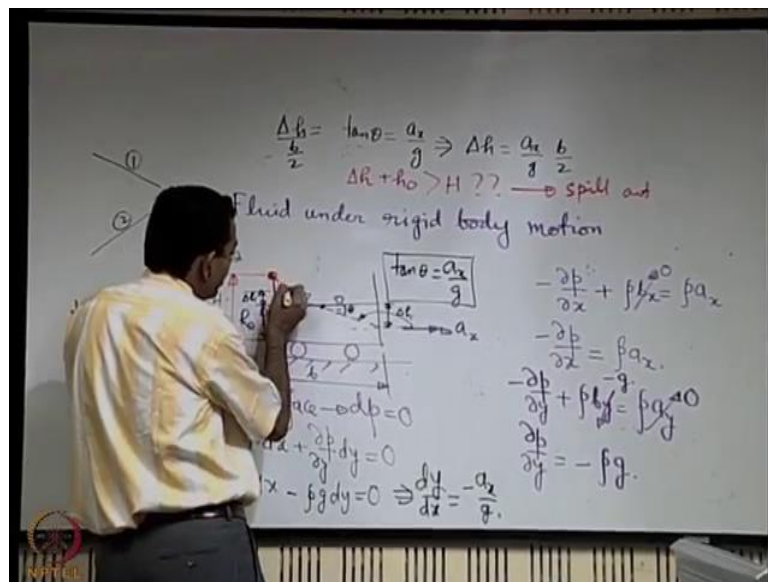 Δh / (b/2) = tanθ = a_x / g ⇒ Δh = a_x / g b / 2
Δh + h₀ > H ?? → spill out
①
②
Fluid under rigid body motion
tanθ = a_x / g
h₀
θ
Δh
a_x
b
-∂p/∂x + ρb_x→0 = ρa_x
-∂p/∂x = ρa_x.
-∂p/∂y + ρb_y→-g = ρa_y→0
∂p/∂y = -ρg.
→ dp = 0
+ ∂p/∂y dy = 0
dx - ρg dy = 0 ⇒ dy/dx = -a_x/g.
NPTEL